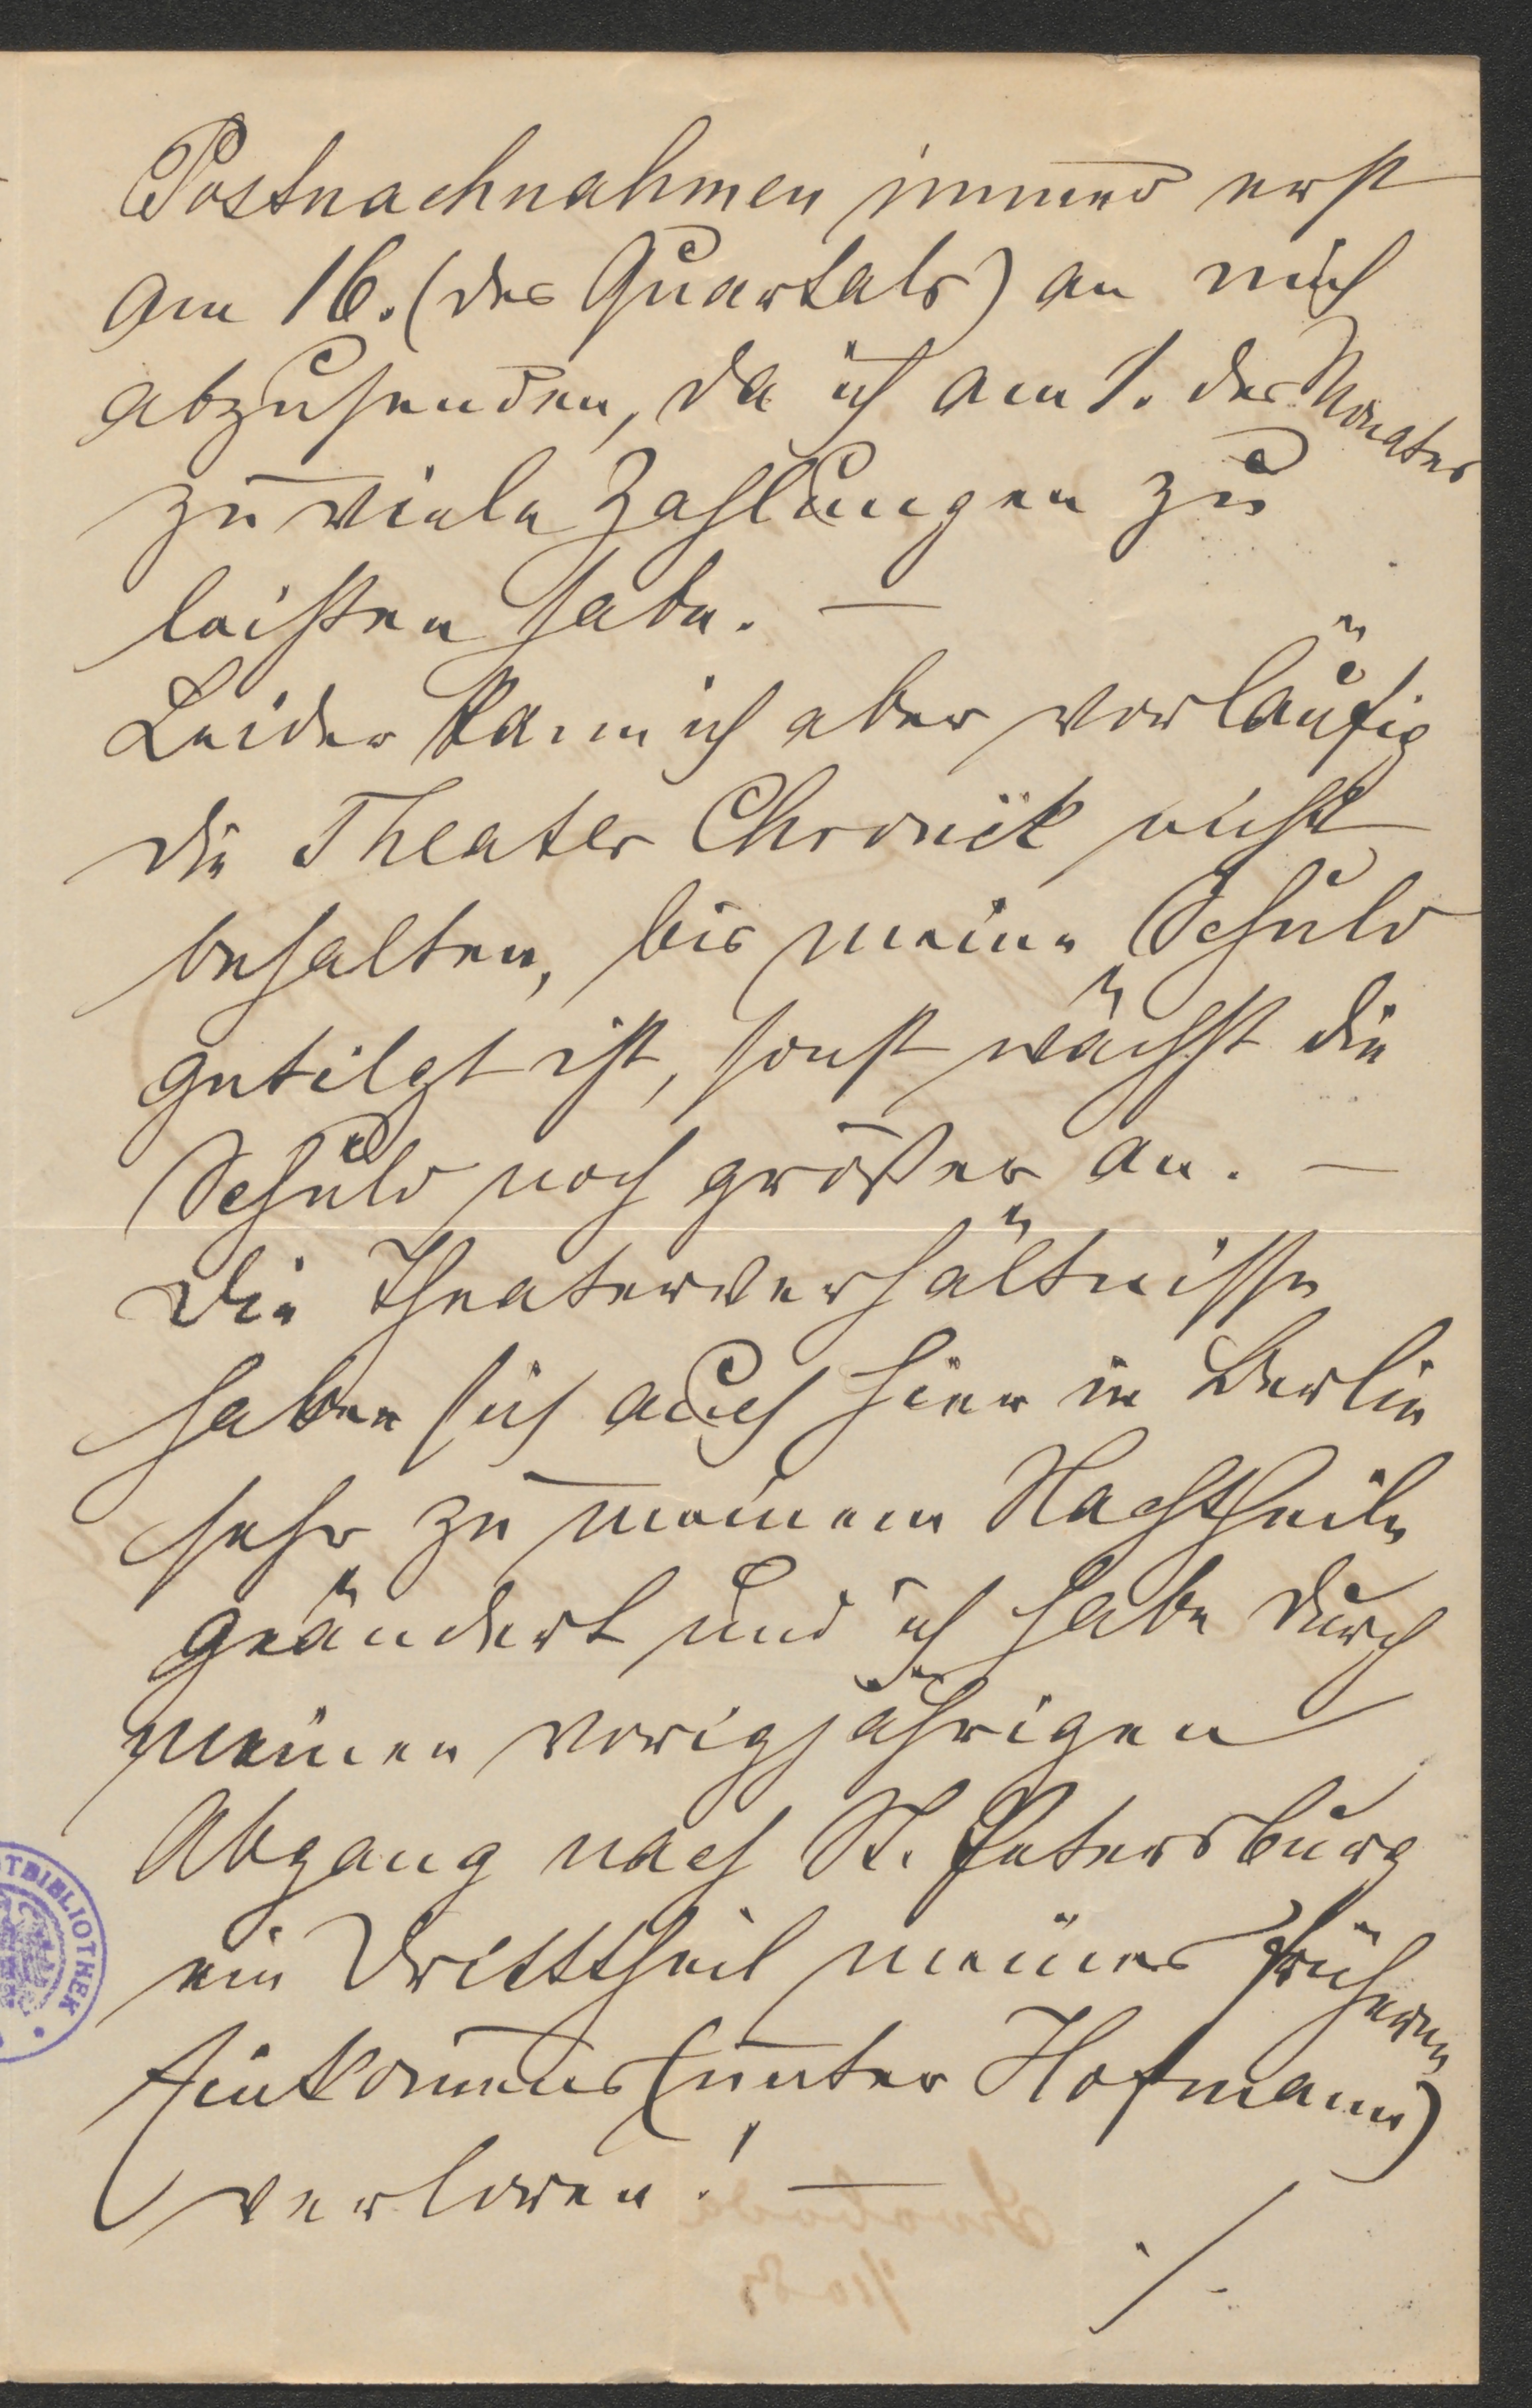 Postnachnahmen immer erst
am 16. (des Quartals) an mich
abzusenden, da ich am 1. des Monates
zu viele Zahlungen zu
leisten habe. —
Leider kann ich aber vorläufig
die Theater Chronik nicht
behalten, bis meine Schuld
getilgt ist, sonst wächst die
Schuld noch größer an. —
Die Theaterverhältnisse
haben sich auch hier in Berlin
sehr zu meinem Nachtheile
geändert und ich habe durch
meinen vorigjährigen
Abgang nach St. Petersburg
ein Dritttheil meines früheren
Einkommens (unter Hofmann)
verloren! —
./.
TBIBLIOTHEK